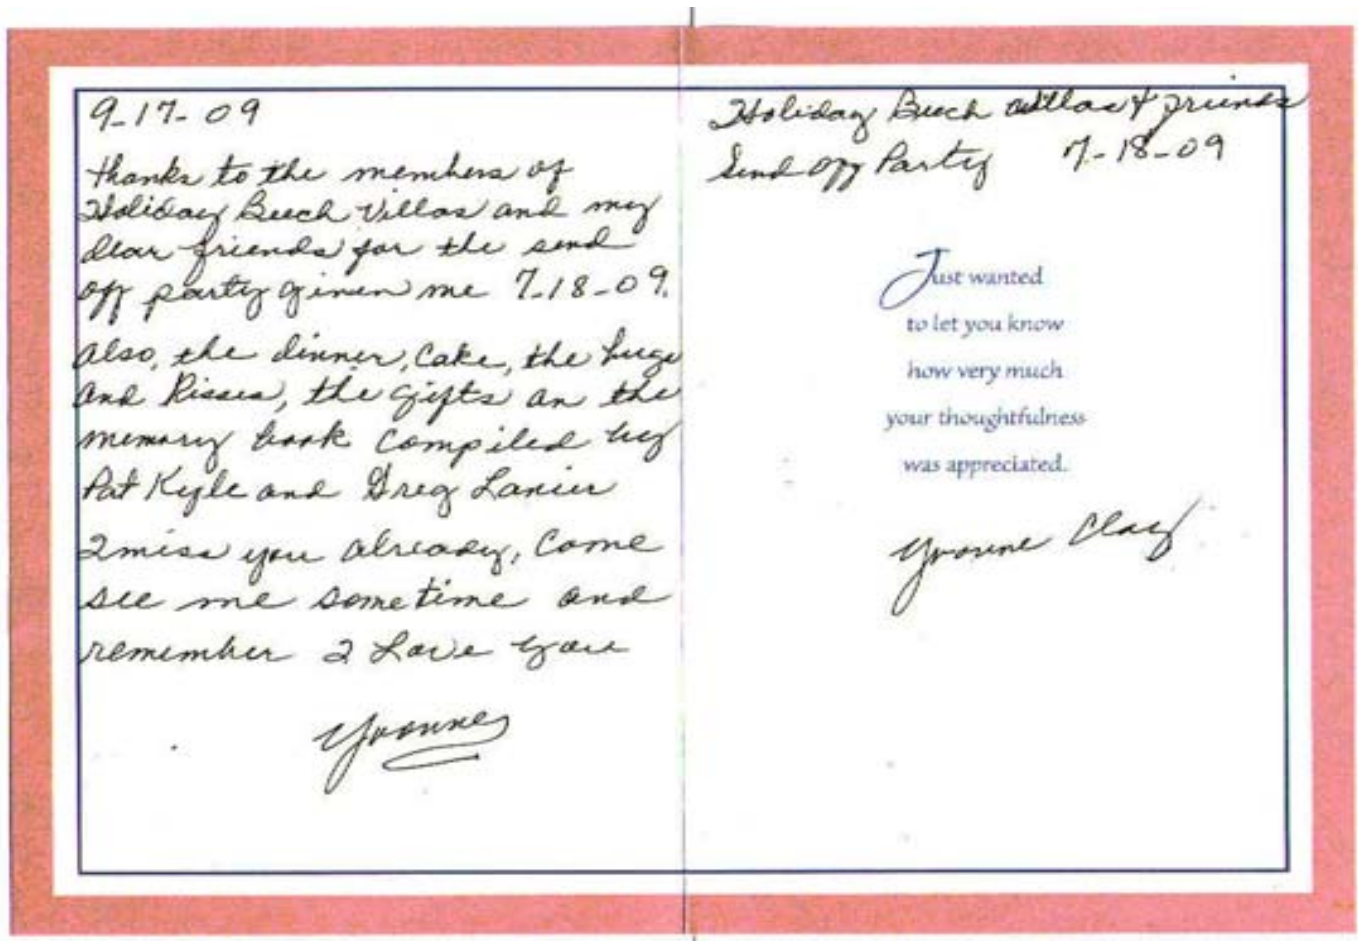 9-17-09
thanks to the members of
Holiday Beech Villas and my
dear friends for the send
off party given me 7-18-09.
Also, the dinner, cake, the hugs
and Kisses, the gifts an the
memory book compiled by
Pat Kyle and Greg Lanier
I miss you already, Come
see me sometime and
remember I Love you
Yvonne
Holiday Beech Villas & friends
Send off Party 7-18-09
Just wanted
to let you know
how very much
your thoughtfulness
was appreciated.
Yvonne Clay